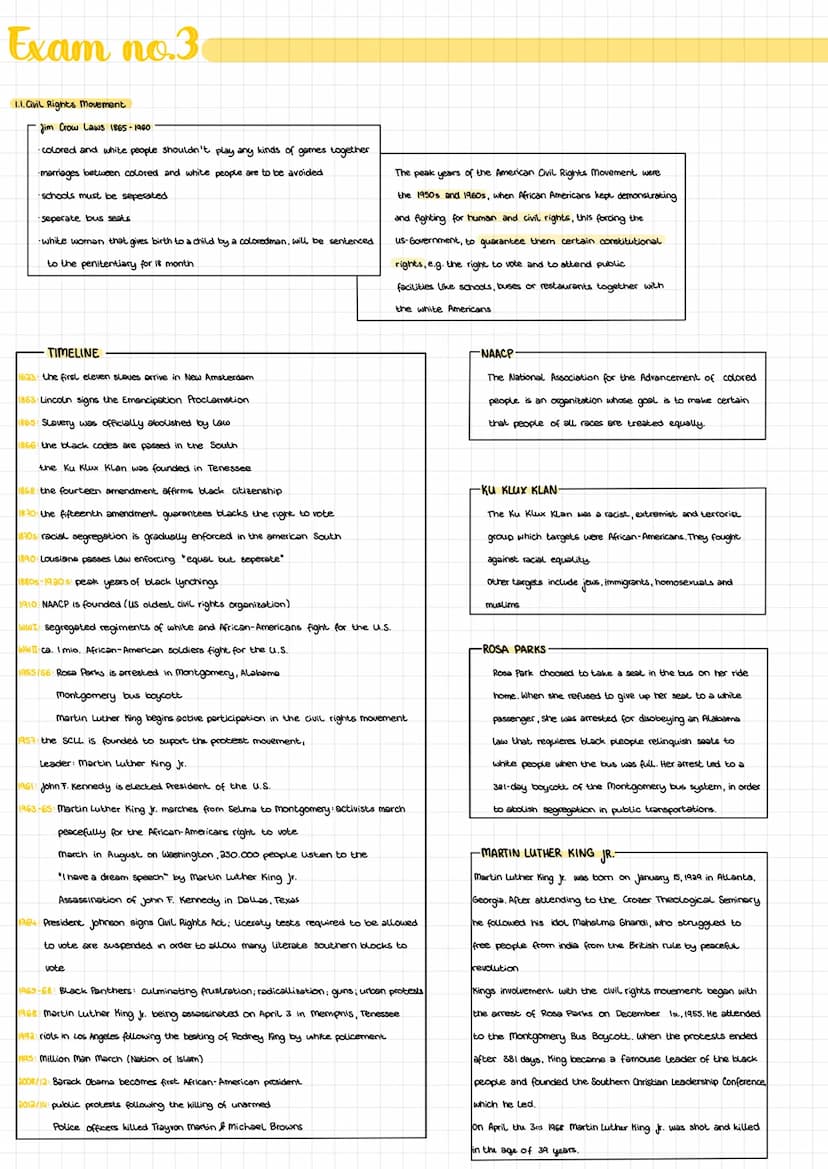 Exam no.3
1.1. Civil Rights Movement
Jim Crow Laws 1865-1960
·colored and white people shouldn't play any kinds of games together
·marriages between colored and white people are to be avoided
·schools must be seperated
·seperate bus seats
·white woman that gives birth to a child by a coloredman, will be sentenced
to the penitentiary for 18 month
The peak years of the American Civil Rights Movement were
the 1950s and 1960s, when African Americans kept demonstrating
and fighting for human and civil rights, this forcing the
US-Government, to guarantee them certain constitutional
rights, e.g. the right to vote and to attend public
facilities like schools, buses or restaurants together with
the white Americans
TIMELINE
the first eleven slaves arrive in New Amsterdam
1863: Lincoln signs the Emancipation Proclamation
1865: Slavery was officially abolished by law
1866: the black codes are passed in the South
the Ku Klux Klan was founded in Tenessee
1868: the fourteen amendment affirms black citizenship
1870: the fifteenth amendment guarantees blacks the right to vote
1870s: racial segregation is gradually enforced in the american South
1890: Lousiana passes law enforcing "equal but seperate"
1880s-1920s: peak years of black lynchings
1910: NAACP is founded (US oldest civil rights organization)
WWI: segregated regiments of white and African-Americans fight for the U.S.
WWII: ca. 1 mio. African-American soldiers fight for the U.S.
1955/56: Rosa Parks is arrested in Montgomery, Alabama
Montgomery bus boycott
Martin Luther King begins active participation in the civil rights movement
1957: the SCLL is founded to suport the protest movement,
Leader: Martin Luther King Jr.
1961: John F. Kennedy is elected President of the U.S.
1963-65: Martin Luther King Jr. marches from Selma to Montgomery: activists march
peacefully for the African-Americans right to vote
March in August on Washington, 250.000 people listen to the
"I have a dream speech" by Martin Luther King Jr.
Assassination of John F. Kennedy in Dallas, Texas
1964: President Johnson signs Civil Rights Act; liceraty tests required to be allowed
to vote are suspended in order to allow many literate southern blocks to
vote
1965-68: Black Panthers: culminating frustration; radicallization; guns; urban protests
1968: Martin Luther King Jr. being assassinated on April 3 in Memphis, Tenessee
1992: riots in Los Angeles following the beating of Rodney King by white policement
1995: Million Man March (Nation of Islam)
2008/12: Barack Obama becomes first African-American president
2012/14: public protests following the killing of unarmed
Police officers killed Trayron Martin & Michael Browns
NAACP
The National Association for the Advancement of colored
people is an organization whose goal is to make certain
that people of all races are treated equally.
KU KLUX KLAN
The Ku Klux Klan was a racist, extremist and terrorist
group which targets were African-Americans. They fought
against racial equality.
Other targets include jews, immigrants, homosexuals and
muslims
ROSA PARKS
Rosa Park choosed to take a seat in the bus on her ride
home. When she refused to give up her seat to a white
passenger, she was arrested for disobeying an Alabama
law that requieres black pleople relinquish seats to
white people when the bus was full. Her arrest led to a
381-day boycott of the Montgomery bus system, in order
to abolish segregation in public transportations.
MARTIN LUTHER KING JR.
Martin Luther King Jr. was born on January 15, 1929 in Atlanta,
Georgia. After attending to the Crozer Theological Seminary
he followed his idol Mahatma Ghandi, who struggled to
free people from india from the British rule by peaceful
revolution
Kings involvement with the civil rights movement began with
the arrest of Rosa Parks on December 1st, 1955. He attended
to the Montgomery Bus Boycott. When the protests ended
after 381 days, King became a famouse leader of the black
people and founded the Southern Christian Leadership Conference,
which he led.
On April the 3rd 1968 Martin Luther King Jr. was shot and killed
in the age of 39 years.